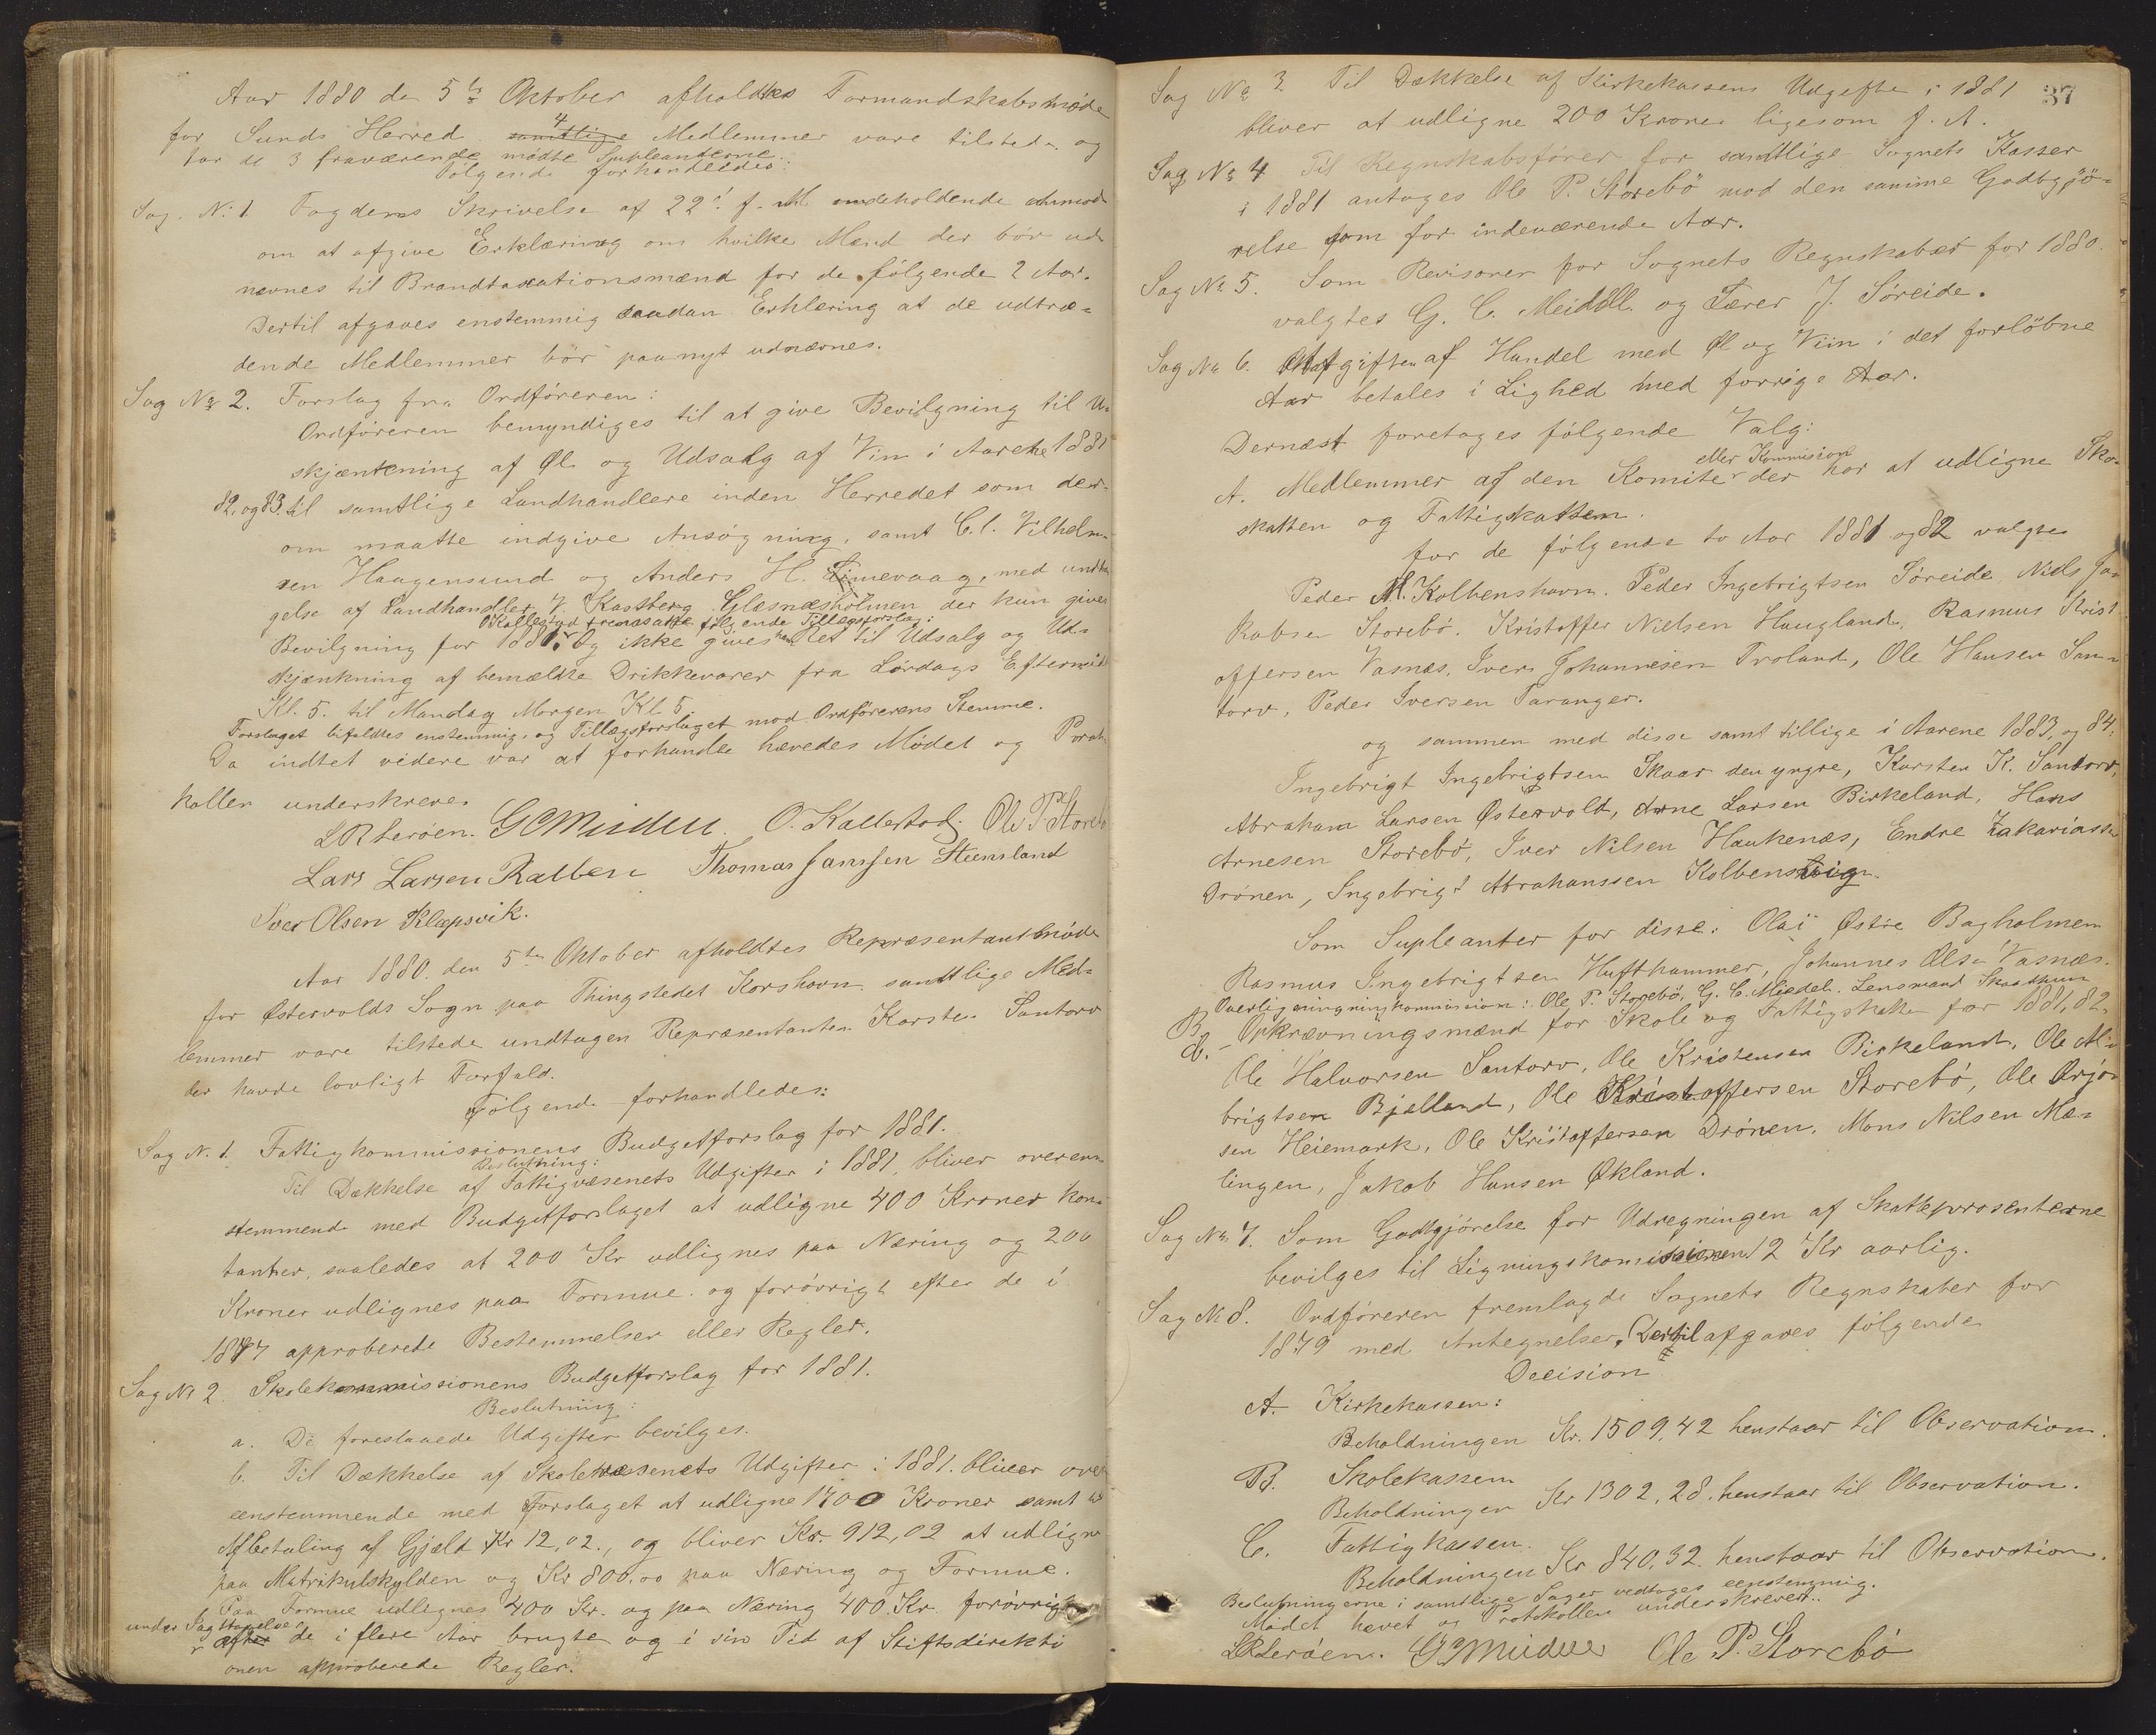 Aar 1880 den 5te Oktober afholdtes Formandskabsmøde
for Sunds Herred 4 samtlige Medlemmer vare tilstede og
for de 3 fraværende mødte Supleanterne.
Følgende forhandledes:
Sag. No: 1 Fogdens Skrivelse af 22. f. M. indeholdende anmod
om at afgive Erklæring om hvilke Mænd der bör ud
nævnes til Brandtaxationsmænd for de følgende 2 Aar.
Dertil afgaves enstemmig saadan Erklæring at de udtræ-
dende Medlemmer bör paanyt udnævnes.
Sag No 2. Forslag fra Ordföreren:
Ordföreren bemyndiges til at give Bevilgning til U-
skjænkning af Øl og Udsalg af Vin i Aarene 1881
82. og 83. til samtlige Landhandlere inden Herredet som der-
om maatte indgive Ansøgning, samt C. C. Vilhelm-
sen Haagensund og Anders H. Limevaag, med undta
gelse af Landhandler V. Kastberg Glæsnæsholmen der kun gives
O Kallestad fremsatte følgende Tillægsforslag:
Bevilgning for 1881. Og ikke gives han Ret til Udsalg og Ud-
skjænkning af bemældte Drikkevarer fra Lørdags Eftermidd
Kl. 5. til Mandag Morgen Kl 5.
Forslaget bifaldtes enstemmig, og Tillægsforslaget mod Ordförerens Stemme.
Da indtet videre var at forhandle hævedes Mödet og Proto
kollen underskreves
L R Leröen. G C Meidell. O. Kallestad. Ole P. Storebö
Lars Larsen Kalben Thomas Janssen Steensland
Iver Olsen Klepsvik.
Aar 1880. den 5te Oktober afholdtes Repræsentantmöde
for Østervolds Sogn paa Thingstedet Korshavn samtlige Med-
lemmer vare tilstede undtagen Repræsentanten Karsten Santorv
der havde lovligt Forfald.
Følgende forhandledes:
Sag No. 1. Fattigkommissionens Budgetforslag for 1881.
Beslutning:
Til Dækkelse af Fattigvæsenets Udgifter i 1881, bliver overeen-
stemmende med Budgetforslaget at udligne 400 Kroner kon-
tanter, saaledes at 200 Kr udlignes paa Næring og 200
Kroner udlignes paa Formue. og forövrigt efter de i
1877 approberede Bestemmelser eller Regler.
Sag No 2 Skolekommissionens Budgetforslag for 1881.
Beslutning:
a. De foreslaaede Udgifter bevilges.
b. Til Dækkelse af Skolevæsenets Udgifter i 1881. bliver over
eenstemmende med Forslaget at udligne 1700 Kroner samt til
Afbetaling af Gjæld Kr 12,02., og bliver Kr. 912,02 at udligne
paa Matrikulskylden og Kr 800.00 paa Næring og Formue.
Paa Formue udlignes 400 Kr. og paa Næring 400 Kr. forövrigt
under Sag
efter de i flere Aar brugte og i sin Tid af Stiftsdirekti
onen approberede Regler.
37
Sag No 3 Til Dækkelse af Kirkekassens Udgifter i 1881
bliver at udligne 200 Kroner ligesom f. A.
Sag No 4 Til Regnskabsfører for samtlige Sognets Kasser
i 1881 antages Ole P. Storebö mod den samme Godtgjö-
relse som for indeværende Aar.
Sag No 5. Som Revisorer for Sognets Regnskaber for 1880.
valgtes G. C. Meidell og Lærer J. Söreide.
Sag No 6. Afgiften af Handel med Øl og Viin i det forløbne
Aar betales i Lighed med forrige Aar.
Dernæst foretages fölgende Valg:
A. Medlemmer af den Komite eller Kommision der har at udligne Skole
skatten og Fattigskatten.
for de følgende to Aar 1881 og 82 valgtes
Peder M. Kolbenshavn. Peder Ingebrigtsen Söreide. Niels Ja-
kobsen Storebö. Kristoffer Nielsen Haugland, Rasmus Krist-
offersen Vasnæs, Iver Johannesen Troland, Ole Hansen San-
torv, Peder Iversen Taranger.
og sammen med disse samt tillige i Aarene 1883, og 84.
Ingebrigt Ingebrigtsen Skaar den yngre, Karsten K. Santorv,
Abraham Larsen Østervold, Arne Larsen Birkeland, Hans
Arnesen Storebö, Iver Nilsen Haukenæs, Endre Zakariassen
Drönen, Ingebrigt Abrahamssen Kolbensvig.
Som Supleanter for disse: Olai Østre Bagholmen
Rasmus Ingebrigtsen Hufthammer, Johannes Olsen Vasnæs.
B Overligningskommission: Ole P. Storebö, G. C. Miedel. Lensmand Skaathun
C. Opkrævningsmænd for Skole og Fattigskatten for 1881, 82.
Ole Halvorsen Santorv, Ole Kristensen Birkeland, Ole
brigtsen Bjælland, Ole Kristoffersen Storebö, Ole Örjan
sen Heiemark, Ole Kristoffersen Drönen, Mons Nilsen Mæ-
lingen, Jakob Hansen Økland.
Sag No 7. Som Godtgjörelse for Udregningen af Skatteprosenterne
bevilges til Ligningskomissionen 12 Kr aarlig.
Sag No 8. Ordföreren fremlagde Sognets Regnskaber for
1879 med Antegnelser, Dertil afgaves fölgende
Decision
A. Kirkekassen:
Beholdningen Kr. 1509,42 henstaar til Observation.
B. Skolekassen
Beholdningen Kr 1302,28. henstaar til Observation.
C. Fattigkassen.
Beholdningen Kr 840,32 henstaar til Observation.
Beslutningerne i samtlige Sager vedtoges eenstemmig.
Mödet hævet og Protokollen underskrevet.
L R Leröen. G C Meidell Ole P. Storebö